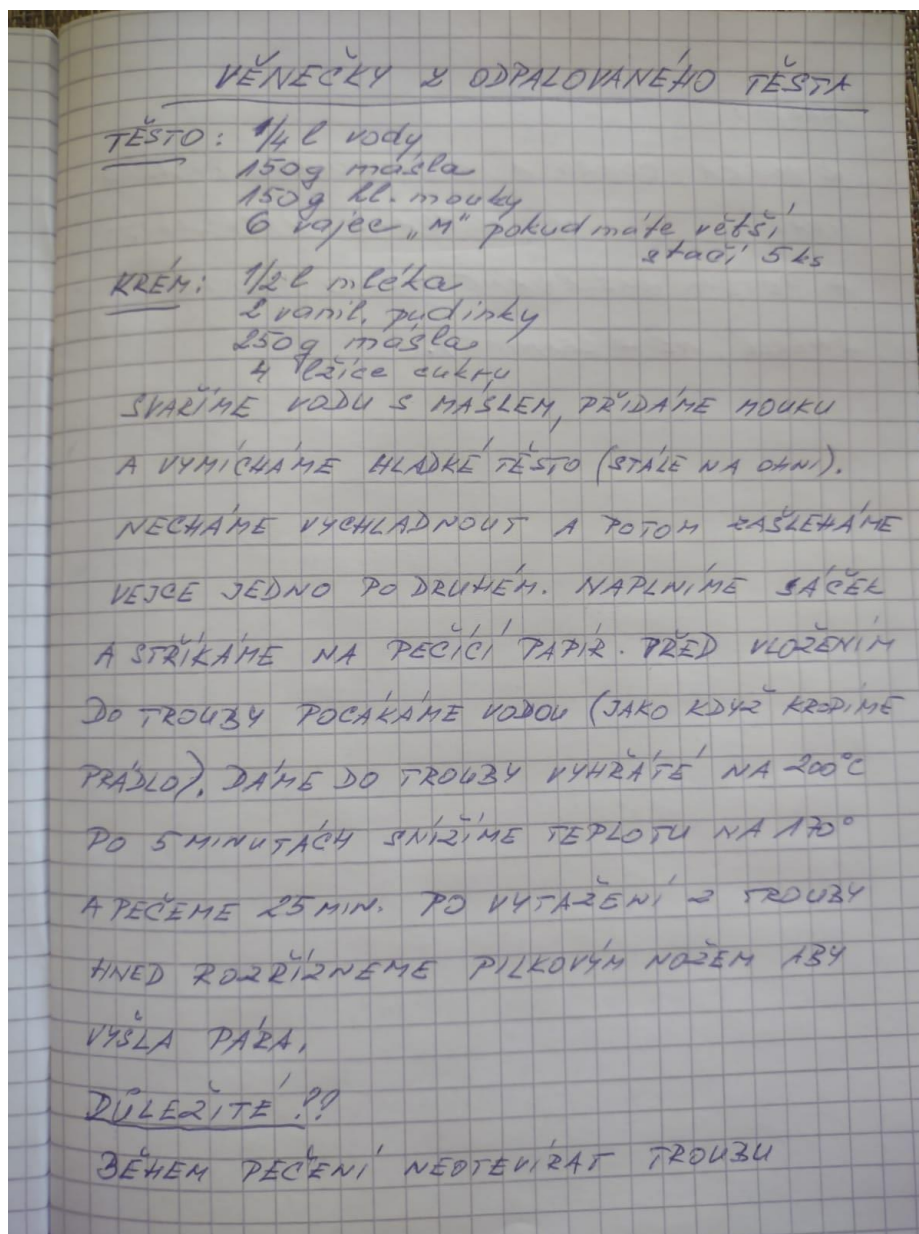 VĚNEČKY Z ODPALOVANÉHO TĚSTA
TĚSTO: 1/4 l vody
150g másla
150g hl. mouky
6 vajec „M" pokud máte větší
stačí 5 ks
KRÉM: 1/2 l mléka
2 vanil. pudinky
250g másla
4 lžíce cukru
SVAŘÍME VODU S MÁSLEM, PŘIDÁME MOUKU
A VYMÍCHÁME HLADKÉ TĚSTO (STÁLE NA OHNI).
NECHÁME VYCHLADNOUT A POTOM ZAŠLEHÁME
VEJCE JEDNO PO DRUHÉM. NAPLNÍME SÁČEK
A STŘÍKÁME NA PEČÍCÍ PAPÍR. PŘED VLOŽENÍM
DO TROUBY POCÁKÁME VODOU (JAKO KDYŽ KROPÍME
PRÁDLO). DÁME DO TROUBY VYHŘÁTÉ NA 200°C
PO 5 MINUTÁCH SNÍŽÍME TEPLOTU NA 170°
A PEČEME 25 MIN. PO VYTAŽENÍ Z TROUBY
HNED ROZŘÍZNEME PILKOVÝM NOŽEM ABY
VYŠLA PÁRA.
DŮLEŽITÉ ??
BĚHEM PEČENÍ NEOTEVÍRAT TROUBU